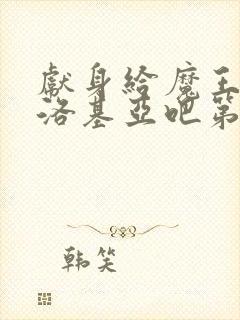 獻身給魔王
洛基亞吧第
韩笑